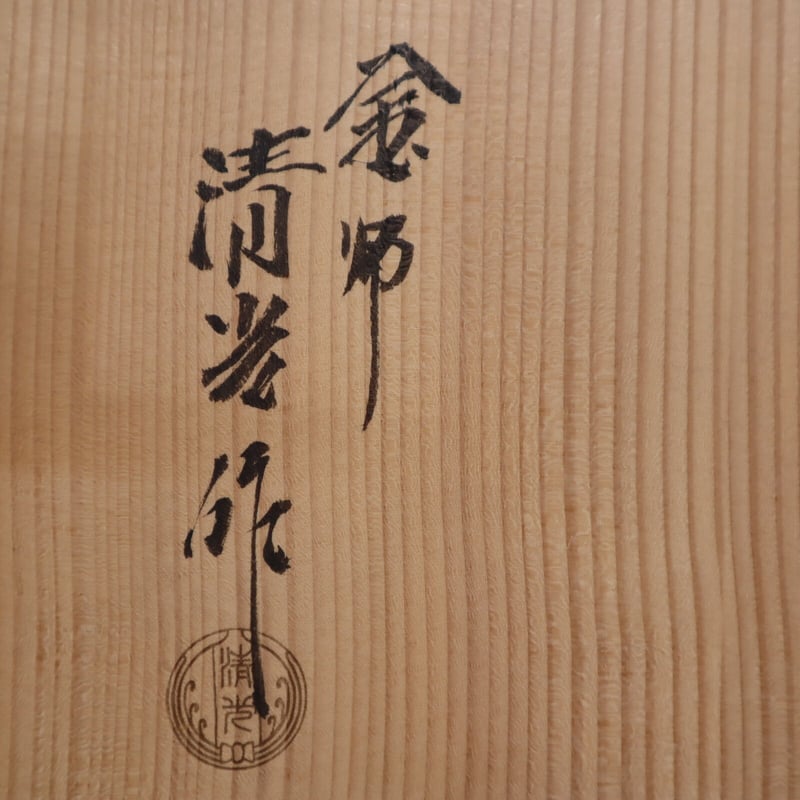 釜師
清光作
清光